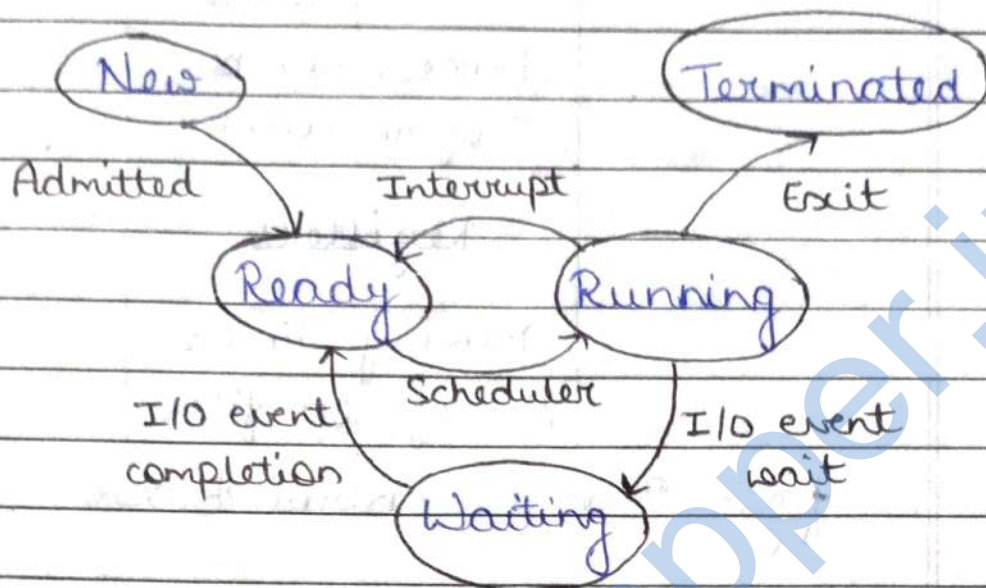 New
Terminated
Admitted
Interrupt
Exit
Ready
Running
Scheduler
I/O event
completion
I/O event
wait
Waiting